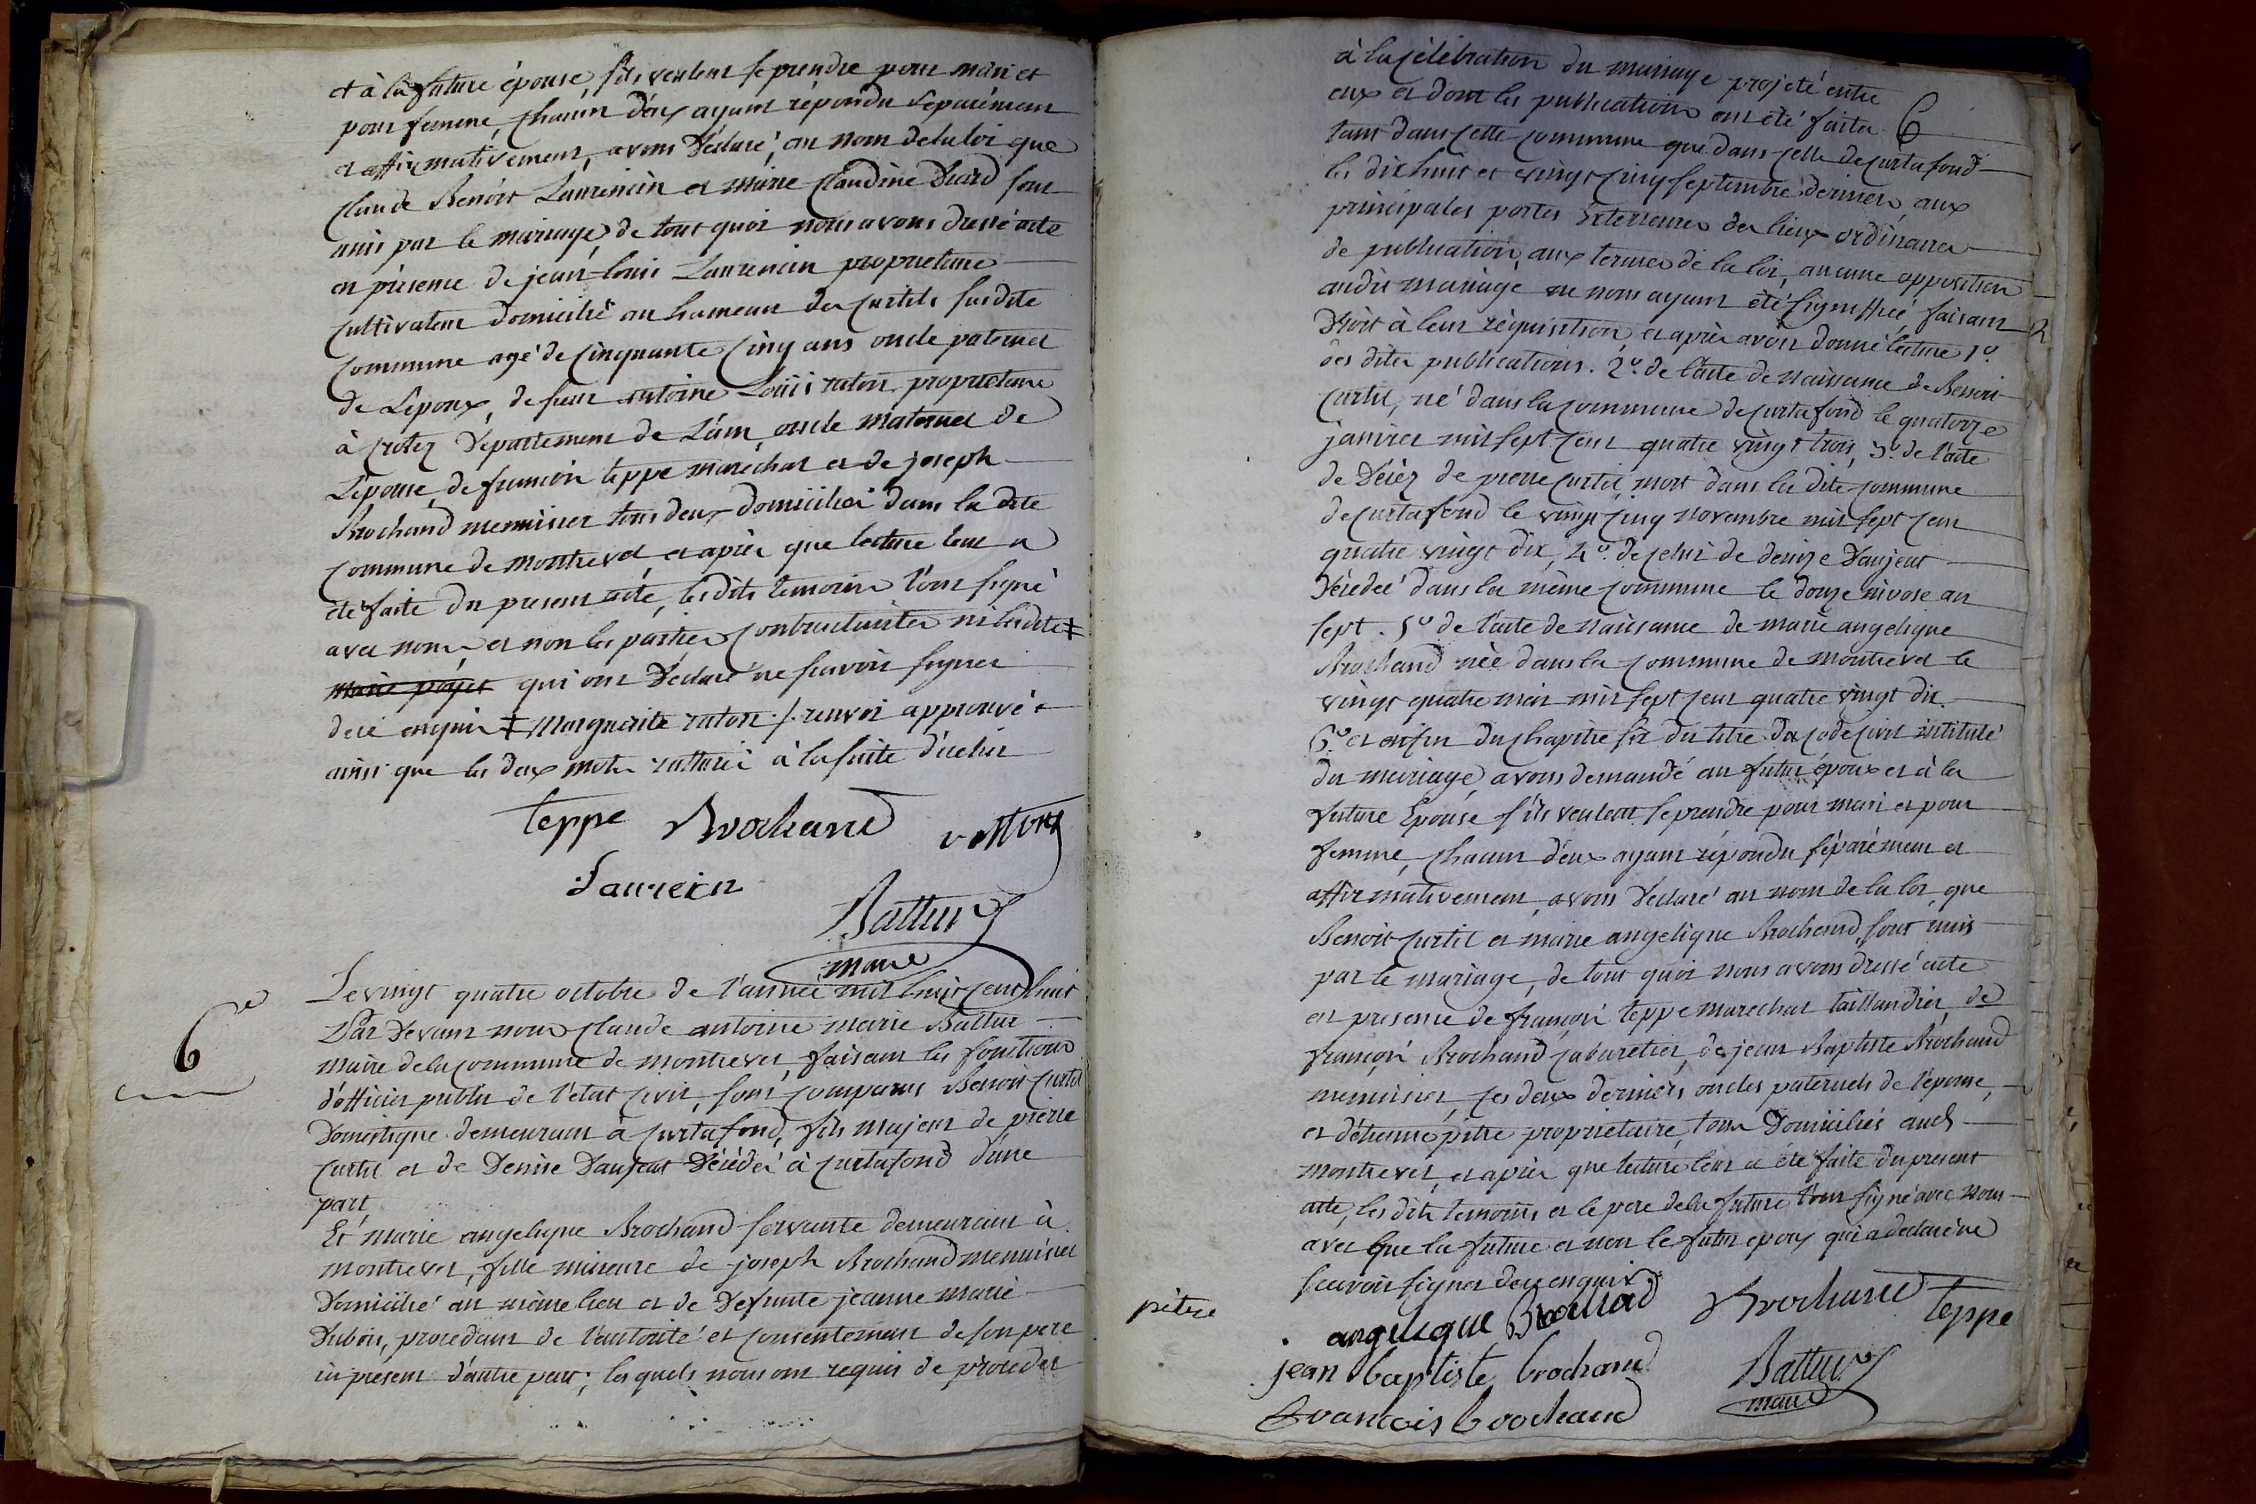 et à la future épouse s'ils veulent se prendre pour mari et
pour femme, chacun d'eux ayant répondu séparément
et affirmativement, avons déclaré, au nom de la loi que
Claude Benoit Laurencin et marie Claudine Viard sont
unis par le mariage, de tout quoi nous avons dressé acte
en présence de jean-louis Laurencin propriétaire
cultivateur domicilié au hameau des curtils susdite
commune agé de cinquante cinq ans oncle paternel
de L'epoux, de sieur antoine Louis raton propriétaire
à Departement de L'ain, oncle maternel de
L'epouse, de françois teppe maréchal et de joseph
Brochand menuisier tous deux domiciliés dans la dite
commune de montrevel, et après que lecture leur a
été faite du present acte, les dits temoins l'ont signé
avec nous, et non les parties contractantes ni ladite ‡
qui ont declaré ne scavoir signer
de ce enquis ‡ Marguerite raton ./. renvoi approuvé
ainsi que les deux mots raturés à la suite d'icelui
teppe Brochand
Laurein
Battur
maire
6e
Le vingt quatre octobre de l'année mil huit cent huit
Par Devant nous Claude antoine marie Battur
maire de la commune de montrevel, faisant les fonctions
d'officier public de l'etat civil, sont comparus Benoit Curtil
Domestique demeurant à Curtafond, fils majeur de pierre
Curtil et de Denise Daujeat Décédés à Curtafond d'une
part
Et marie angelique Brochand servante demeurant à
montrevel, fille mineure de joseph Brochand menuisier
Domicilié au même lieu et de Defunte jeanne marie
Dubois, procedant de l'autorité et consentement de son pere
ici present d'autre part; les quels nous ont requis de proceder
à la célébration du mariage projeté entre
eux et dont les publications ont été faites 6
tant dans cette commune que dans celle de Curtafond
les dix huit et vingt cinq septembre dernier, aux
principales portes exterieures des lieux ordinaires
de publication, aux termes de la loi, aucune opposition
audit mariage ne nous ayant été signiffiée faisant
Droit à leur réquisition, et après avoir donné lecture 1°.
des dites publications. 2°. de l'acte de naissance de Benoit
Curtil, né dans la commune de Curtafond le quatorze
janvier mil sept cent quatre vingt trois, 3°. de l'acte
de Décès de pierre Curtil, mort dans la dite commune
de Curtafond le vingt cinq novembre mil sept cent
quatre vingt dix, 4°. de celui de denize Daujeat
Décedée dans la même commune le douze nivose an
sept. 5° de l'acte de naissance de marie angelique
Brochand née dans la commune de montrevel le
vingt quatre mai mil sept cent quatre vingt dix.
6°. et enfin du chapitre six du titre du code civil intitulé
du mariage, avons demandé au futur époux et à la
future Epouse s'ils veulent se prendre pour mari et pour
femme, chacun d'eux ayant répondu séparément et
affirmativement, avons declaré au nom de la loi, que
Benoit Curtil et marie angelique Brochand, sont unis
par le mariage, de tout quoi nous avons dressé acte
en presence de françois teppe marechal taillandier, de
françois Brochand cabaretier, de jean Baptiste Brochand
menuisier, ces deux derniers oncles paternels de l'épouse,
et d'étienne pitre propriétaire, tous Domiciliés aud.
montrevel, et après que lecture leur a été faite du present
acte, les dits temoins et le pere de la future l'ont signé avec nous
avec que la future et non le futur epoux qui a declaré ne
scavoir signer de ce enquis.
pitre
angelique Brochand Brochand teppe
jean baptiste brochand Battur
maire
francois brochand